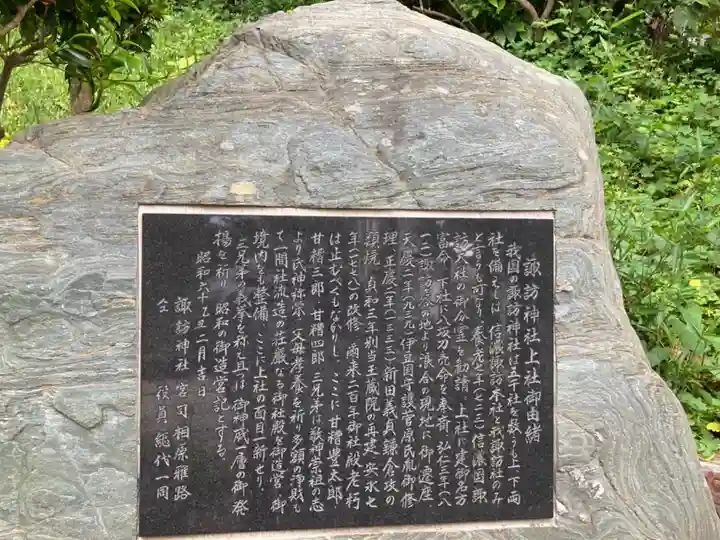 諏訪神社上社御由緒
我国の諏訪神社は五千社を数うも上、下両
社を備えしは、信濃諏訪本社と我諏訪社のみ
と言うも可なり、養老七年(七二三)信濃国諏
訪大社の御分霊を勧請、上社に建御名方
富命、下社に八坂刀売命を奉斎、弘仁三年(八
一二)諏訪谷の地より浪合の現地に御遷座、
天慶二年(九三九)伊豆国守護菅原民胤御修
理、正慶二年(一三三三)新田義貞鎌倉攻の
類焼、貞和三年別当玉蔵院の再建、安永七
年(一七七八)の改修、爾来二百年御社殿老朽
は止むべくもなかりし、ここに甘糟豊太郎、
甘糟三郎、甘糟四郎、三兄弟は敬神崇祖の志
より氏神弥栄、父母孝養を祈り多額の浄財も
て一間社流造の荘厳なる御社殿を御造営、御
境内をも整備、ここに上社の面目一新せり、
三兄弟の義挙を称え且つは、御神威一層の御発
揚を祈り、昭和の御造営記とする。
昭和六十年乙丑二月吉日
諏訪神社 宮司 相原雁路
仝 役員 総代一同